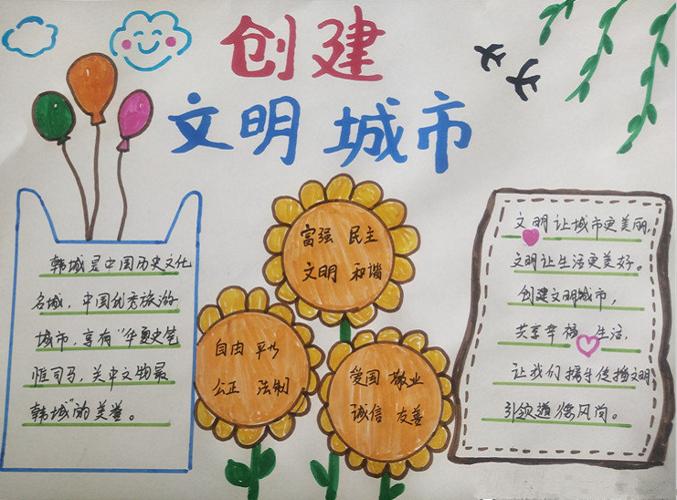 创建
文明城市
韩城是中国历史文化
名城，中国优秀旅游
城市，享有“华夏史笔
惟司马，关中文物最
韩城”的美誉。
富强 民主
文明 和谐
自由 平等
公正 法制
爱国 敬业
诚信 友善
文明让城市更美丽，
文明让生活更美好。
创建文明城市，
共享幸福生活，
让我们携手传播文明
引领道德风尚。